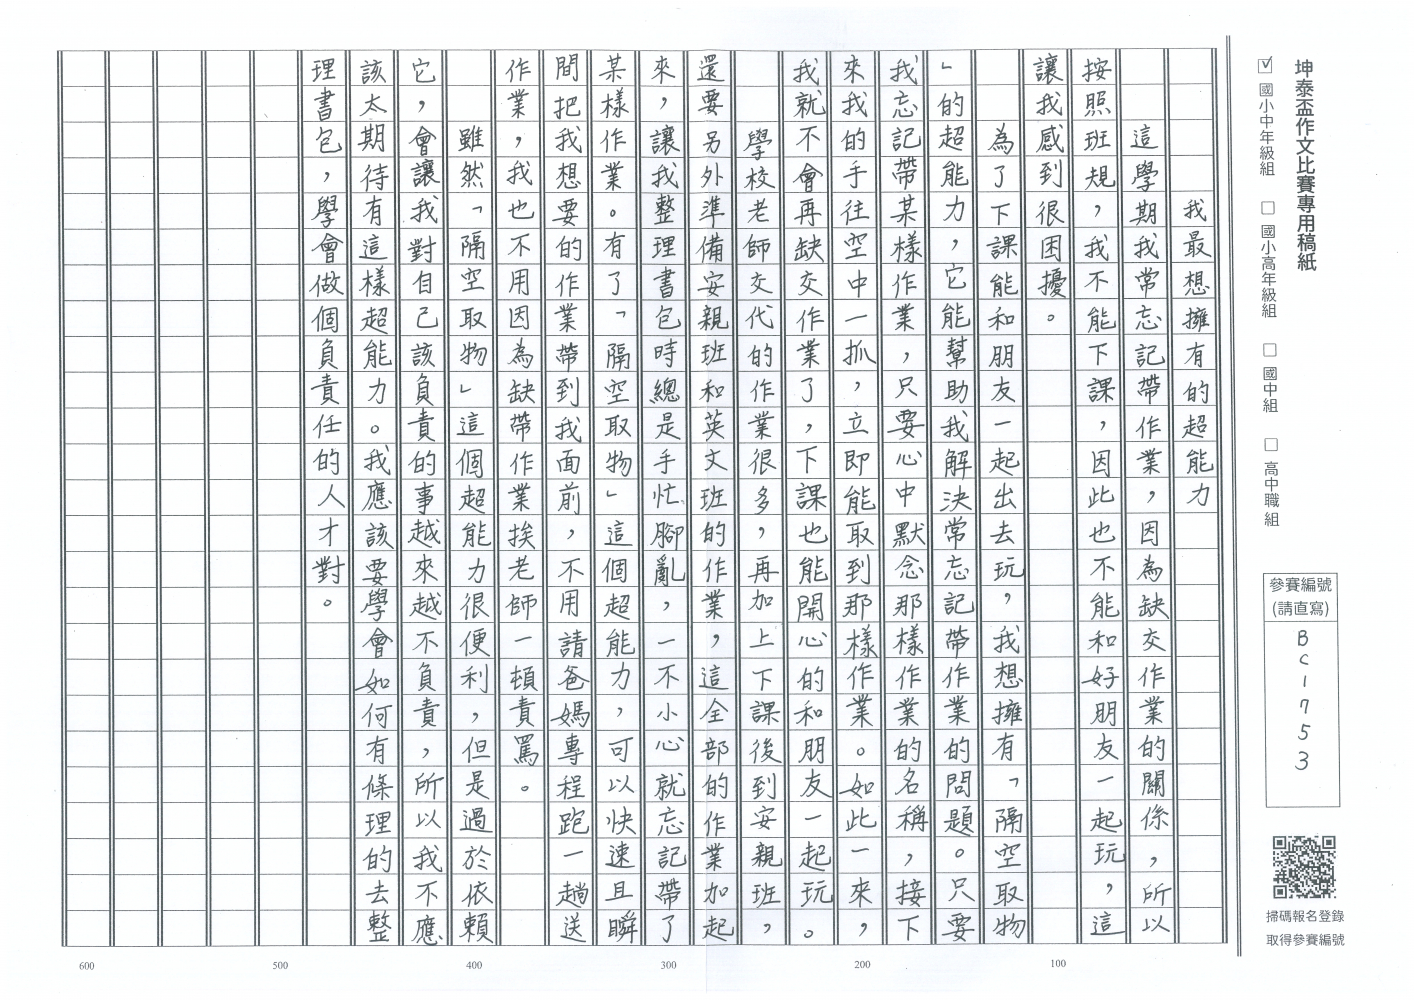 坤泰盃作文比賽專用稿紙
☑ 國小中年級組 □ 國小高年級組 □ 國中組 □ 高中職組
參賽編號
(請直寫)
BC1753
掃碼報名登錄
取得參賽編號
我最想擁有的超能力
這學期我常忘記帶作業，因為缺交作業的關係，所以
按照班規，我不能下課，因此也不能和好朋友一起玩，這
讓我感到很困擾。
為了下課能和朋友一起出去玩，我想擁有「隔空取物
」的超能力，它能幫助我解決常忘記帶作業的問題。只要
我忘記帶某樣作業，只要心中默念那樣作業的名稱，接下
來我的手往空中一抓，立即能取到那樣作業。如此一來，
我就不會再缺交作業了，下課也能開心的和朋友一起玩。
學校老師交代的作業很多，再加上下課後到安親班，
還要另外準備安親班和英文班的作業，這全部的作業加起
來，讓我整理書包時總是手忙腳亂，一不小心就忘記帶了
某樣作業。有了「隔空取物」這個超能力，可以快速且瞬
間把我想要的作業帶到我面前，不用請爸媽專程跑一趟送
作業，我也不用因為缺帶作業挨老師一頓責罵。
雖然「隔空取物」這個超能力很便利，但是過於依賴
它，會讓我對自己該負責的事越來越不負責，所以我不應
該太期待有這樣超能力。我應該要學會如何有條理的去整
理書包，學會做個負責任的人才對。
100
200
300
400
500
600